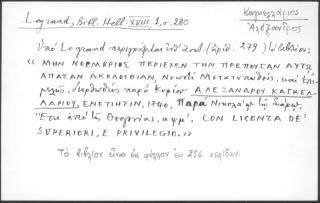 Legrand, Bibl. Hell. XVIII, 1, σ. 280
Καγκελλάριος
Ἀλέξανδρος
Ὑπὸ Legrand περιγράφεται ὑπ' ἀριθ. (ἀριθ. 279) τὸ βιβλίον:
« ΜΗΝ ΝΟΕΜΒΡΙΟΣ ΠΕΡΙΕΧΩΝ ΤΗΝ ΠΡΕΠΟΥΣΑΝ ΑΥΤΩ
ΑΠΑΣΑΝ ΑΚΟΛΟΥΘΙΑΝ, Νεωστὶ Μετατυπωθείς, καὶ ἐπι-
μελῶς διορθωθεὶς παρὰ Κυρίου ΑΛΕΞΑΝΔΡΟΥ ΚΑΓΚΕΛ
ΛΑΡΙΟΥ, ΕΝΕΤΙΗΣΙΝ, 1740. Παρὰ Νικολάῳ τῷ Σάρῳ.
Ἔτει ἀπὸ τῆς Θεογονίας, αψμ'. CON LICENZA DE'
SUPERIORI, E PRIVILEGIO. »
Τὸ βιβλίον εἶναι εἰς φύλλον ἐκ 256 σελίδων.